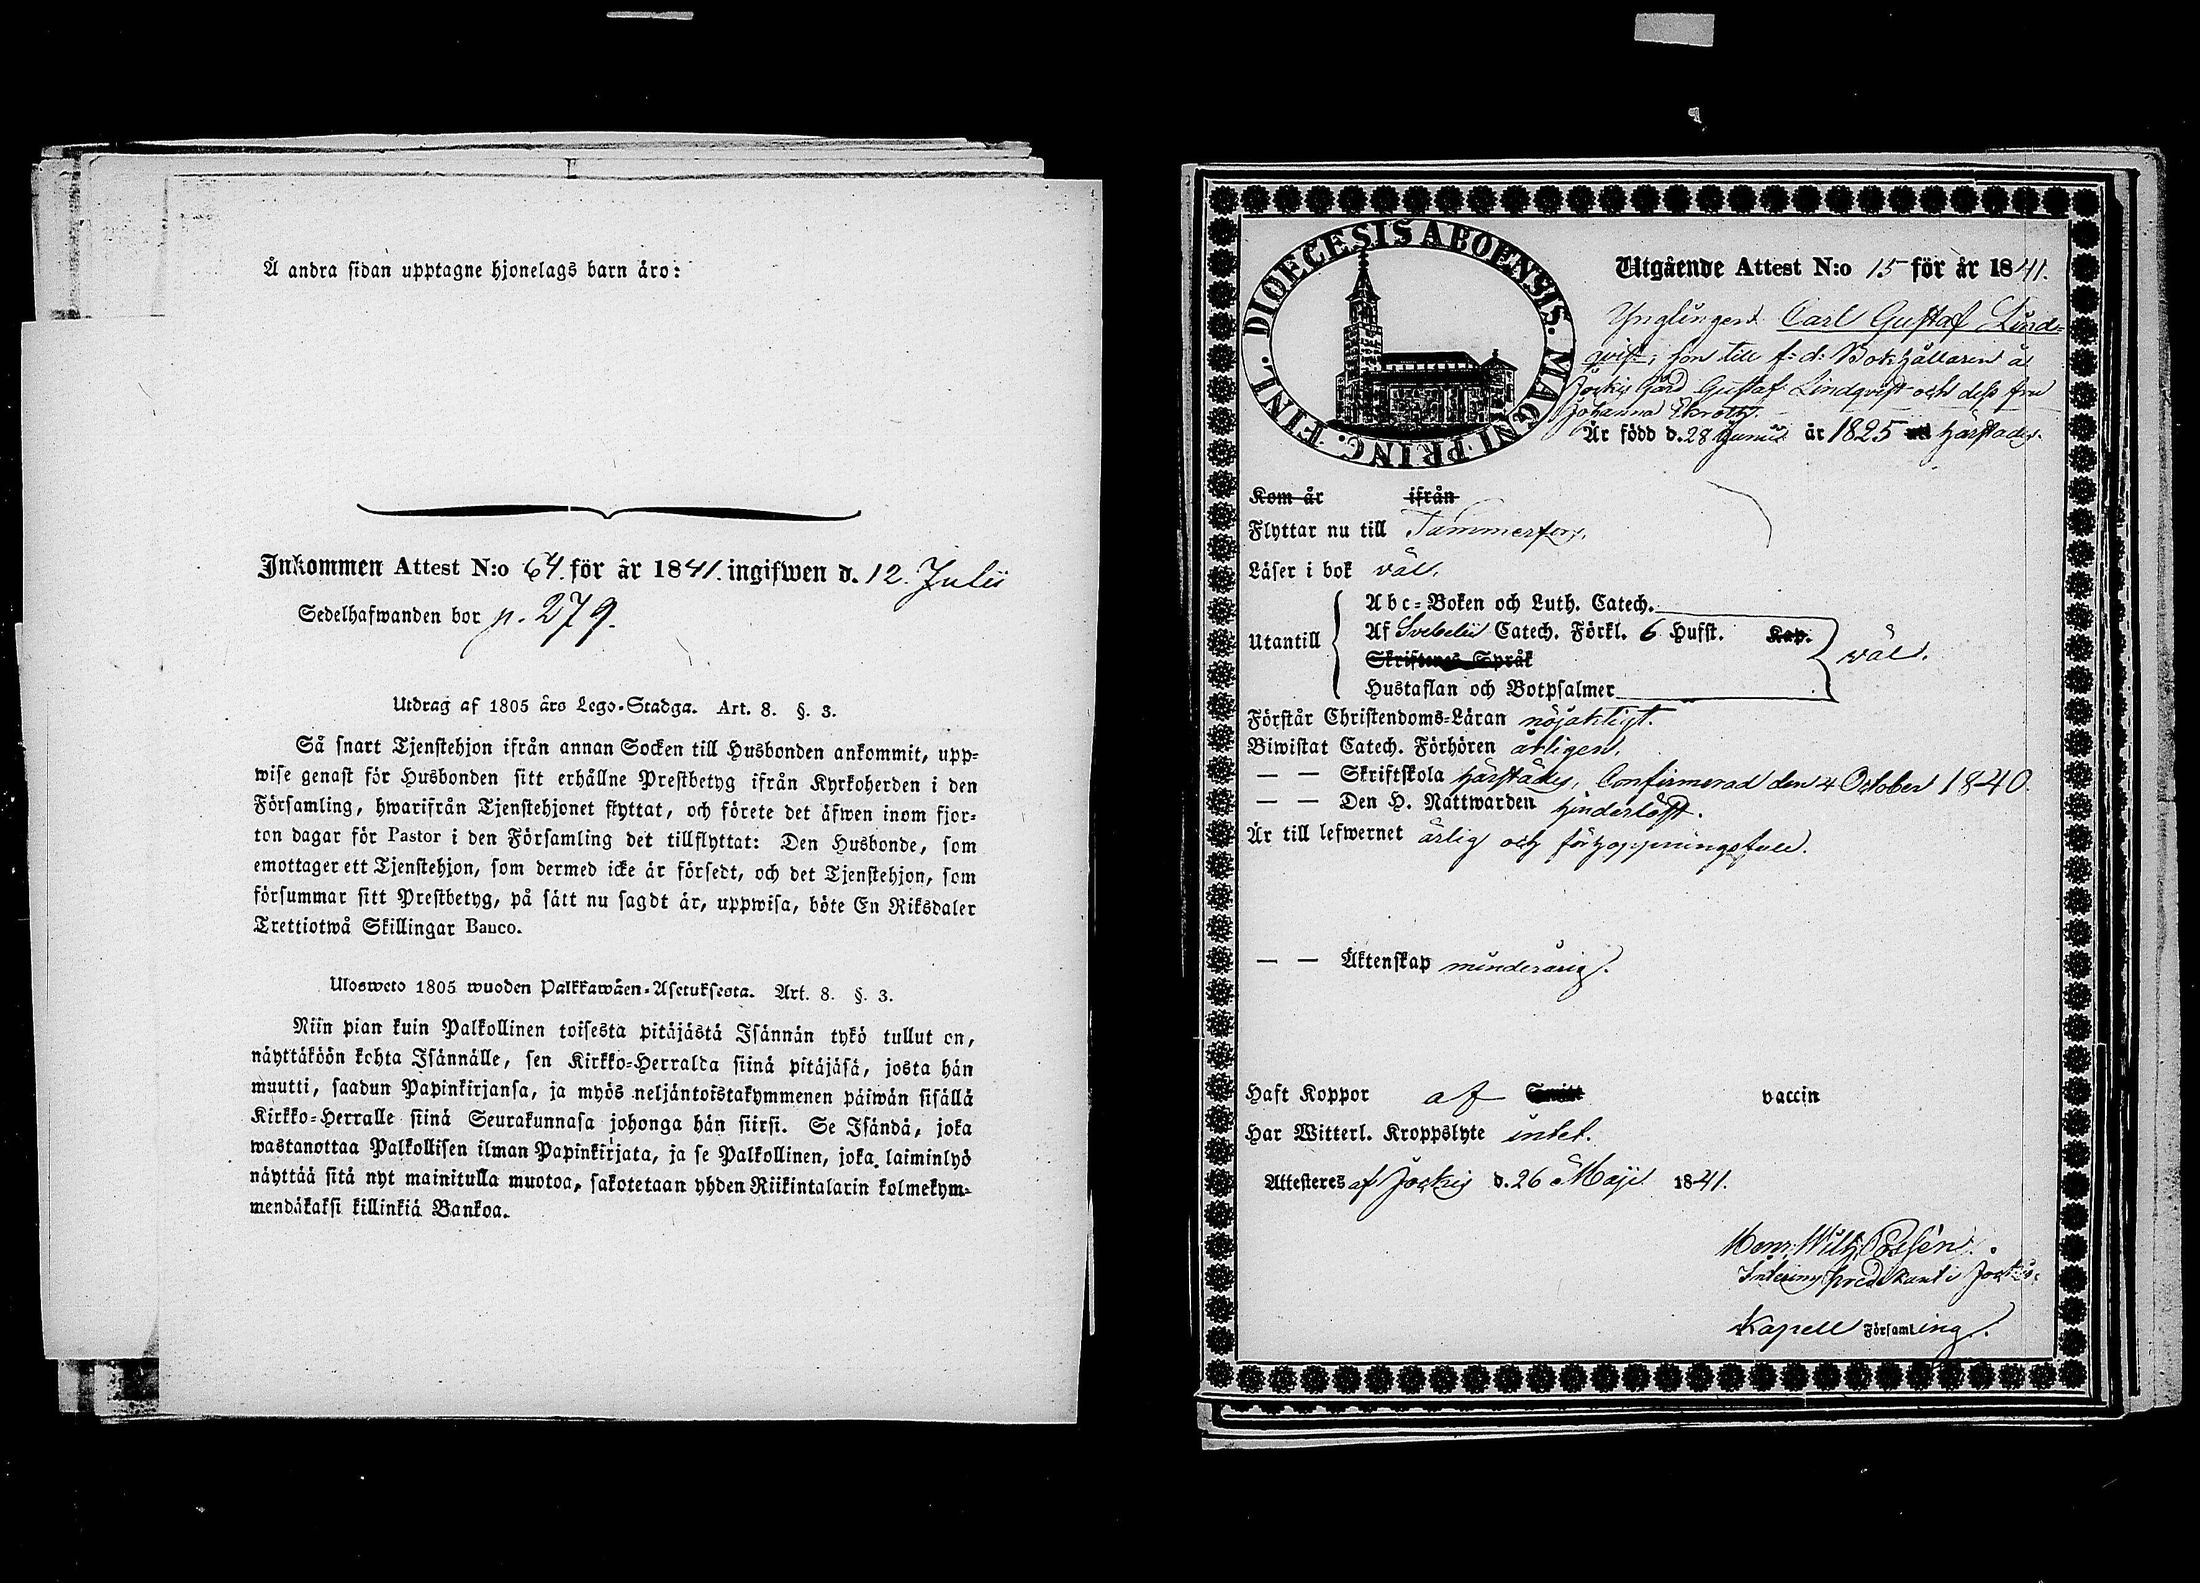 Å andra sidan upptagne hjonelags barn äro:
Inkommen Attest N:o 64. för år 1841. ingifwen d. 12. Julii
Sedelhafwanden bor p. 279.
Utdrag af 1805 års Lego-Stadga. Art. 8. §. 3.
Så snart Tjenstehjon ifrån annan Socken till Husbonden ankommit, upp-
wise genast för Husbonden sitt erhållne Prestbetyg ifrån Kyrkoherden i den
Församling, hwarifrån Tjenstehjonet flyttat, och förete det äfwen inom fjor-
ton dagar för Pastor i den Församling det tillflyttat: Den Husbonde, som
emottager ett Tjenstehjon, som dermed icke är försedt, och det Tjenstehjon, som
försummar sitt Prestbetyg, på sätt nu sagdt är, uppwisa, böte En Riksdaler
Trettiotwå Skillingar Banco.
Ulosweto 1805 wuoden Palkkawäen-Asetuksesta. Art. 8. §. 3.
Niin pian kuin Palkollinen toisesta pitäjästä Isännän tykö tullut on,
näyttäköön kohta Isännälle, sen Kirkko-Herralda siinä pitäjäsä, josta hän
muutti, saadun Papinkirjansa, ja myös neljäntoistakymmenen päiwän sisällä
Kirkko-Herralle siinä Seurakunnasa johonga hän siirsi. Se Isändä, joka
wastanottaa Palkollisen ilman Papinkirjata, ja se Palkollinen, joka laiminlyö
näyttää sitä nyt mainitulla muotoa, sakotetaan yhden Riikintalarin kolmekym-
mendäkaksi killinkiä Bankoa.
DIOECESIS ABOENSIS. MAGNI PRINC. FINL.
Utgående Attest N:o 15 för år 1841.
Ynglingen Carl Gustaf Lind-
qvist, son till f. d. Bokhållaren å
Jockis Gård Gustaf Lindqvist och dess fru
Johanna Ekroth.
Är född d. 28 Junii år 1825 härstädes.
Kom år ifrån
Flyttar nu till Tammerfors.
Läser i bok väl.
Utantill
Abc-Boken och Luth. Catech.
Af Svebelii Catech. Förkl. 6 Hufst. Kap.
Skriftenes Språk
Hustaflan och Botpsalmer
väl.
Förstår Christendoms-Läran nöjaktigt.
Biwistat Catech. Förhören årligen.
— — Skriftskola härstädes, Confirmerad den 4 October 1840.
— — Den H. Nattwarden hinderlöst.
Är till lefwernet ärlig och förhoppningsfull.
— — Äktenskap minderårig.
Haft Koppor af vaccin
Har Witterl. Kroppslyte intet.
Attesteres af Jockis d. 26 Maji 1841.
Henr. Wilh.
predikant i Jockis
Kapell Församling.